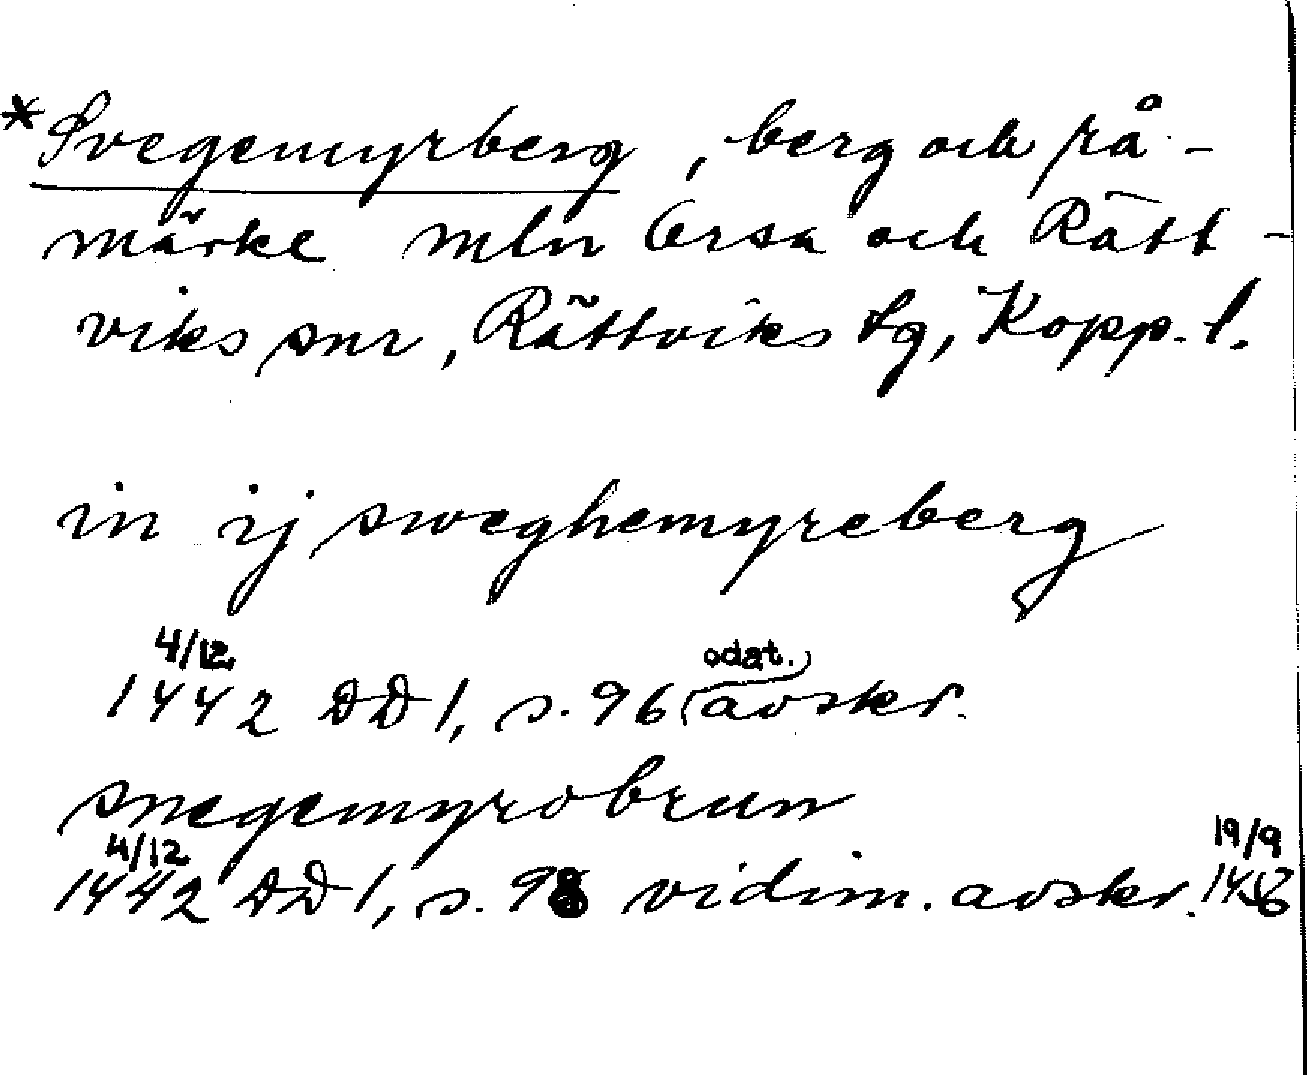 *Svegemyrberg, berg och rå-
märke mln Orsa och Rätt-
viks snr, Rättviks tg, Kopp. l.
in ij sweghemyreberg
4/12
odat.
1442 DD 1, s. 96 avskr.
snegemyrobrun
4/12
19/9
1442 DD 1, s. 98 vidim. avskr.